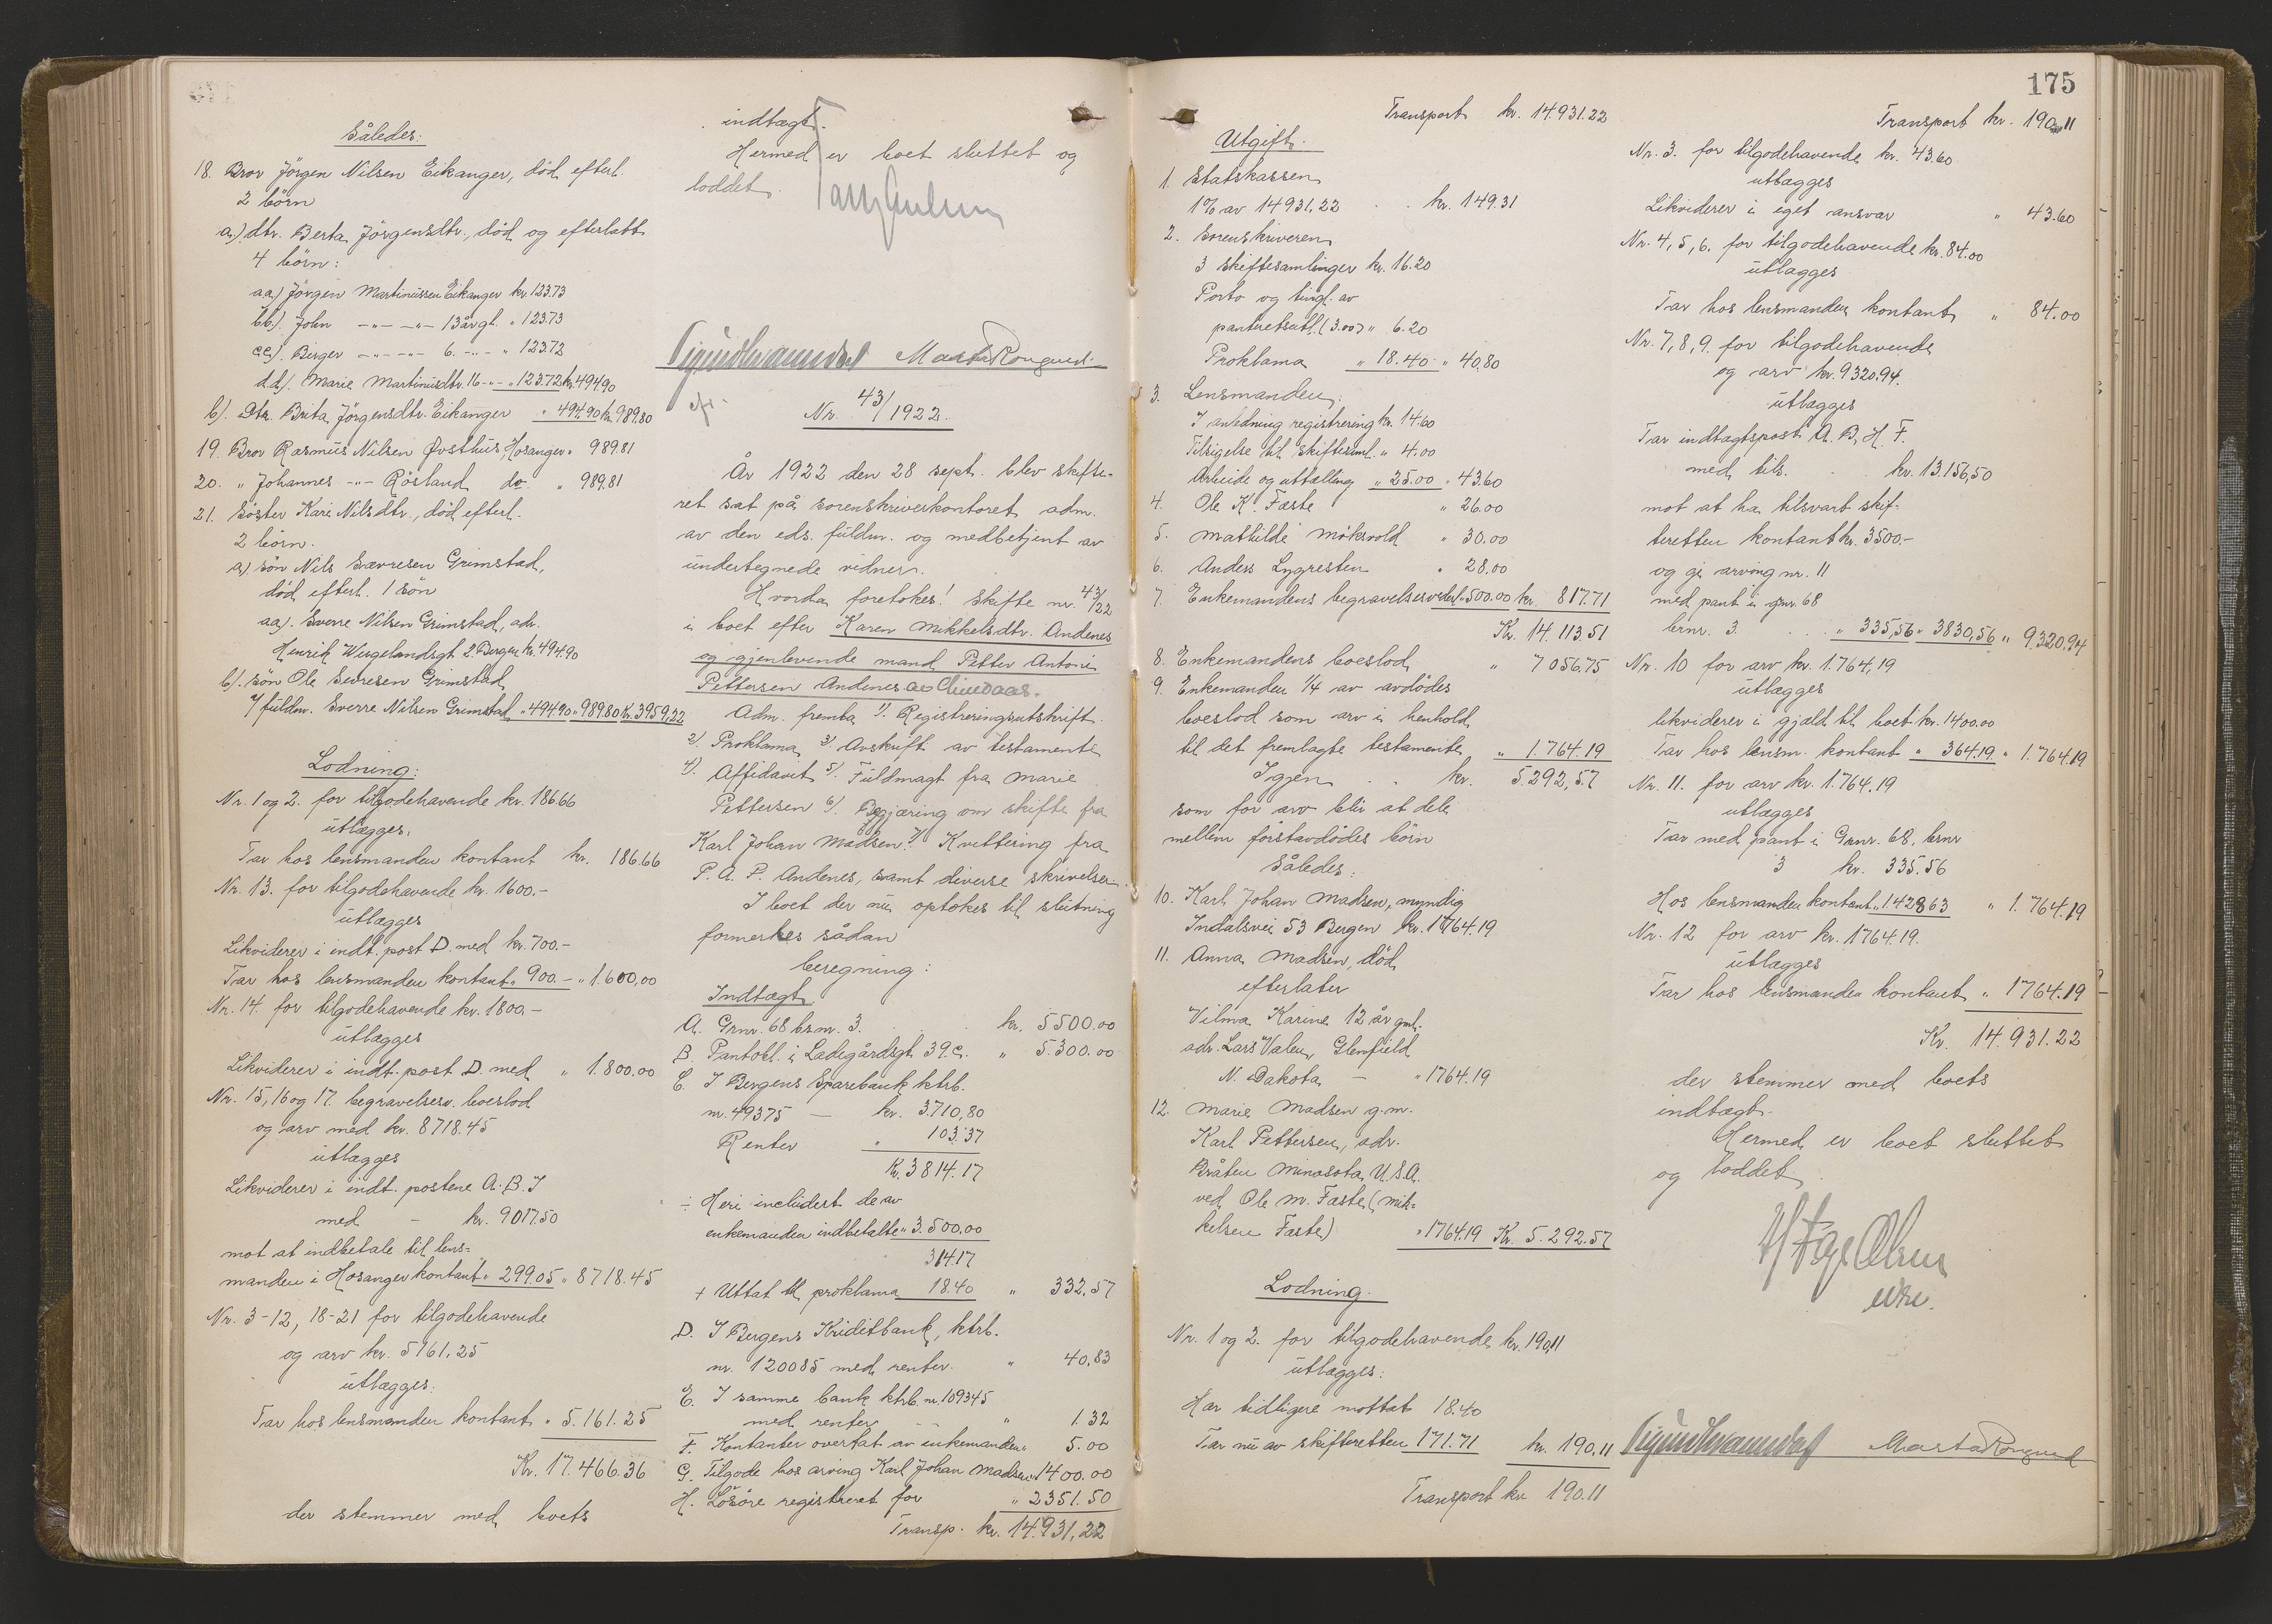 Således:
18. Bror Jörgen Nilsen Eikanger, död, efterl.
2 börn
a) dtr. Berta Jörgensdtr., död og efterlatt
4 börn:
aa) Jörgen Martinussen Eikanger kr. 123.73
bb). John -"- -"- 13 år gl. " 123.73
cc). Birger -"- -"- 6. -"- " 123.72
dd). Marie Martinusdtr. 16 -"- " 123.72 kr. 494.90
b). Dtr. Brita Jörgensdtr. Eikanger " 494.90 kr. 989.80
19. Bror Rasmus Nilsen Øvsthus, Hosanger " 989.81
20. " Johannes -"- Röstand do. " 989.81
21. Söster Kari Nilsdtr., död, efterl.
2 börn.
a) sön Nils Sævresen Grimstad,
död, efterl. 1 sön
aa). Sverre Nilsen Grimstad, adr.
Henrik Wergelandsgt. 2. Bergen kr. 494.90
b). sön Ole Sevresen Grimstad
v/ fuldm. Sverre Nilsen Grimstad " 494.90 " 989.80 Kr. 3959,22
Lodning:
Nr. 1 og 2. for tilgodehavende kr. 186.66
utlægges.
Tar hos lensmanden kontant kr. 186.66
Nr. 13. for tilgodehavende kr. 1600.-
utlægges
Likviderer i indt. post D. med kr. 700.-
Tar hos lensmanden kontant " 900.- " 1.600,00
Nr. 14. for tilgodehavende kr. 1800.-
utlægges
Likviderer i indt. post D. med " 1.800.00
Nr. 15, 16 og 17. begravelsesv. boeslod
og arv med kr. 8718.45
utlægges
Likviderer i indt. postene A. B. I
med - kr. 9017.50
mot at indbetale til lens=
manden i Hosanger kontant " 299.05 " 8718.45
Nr. 3-12, 18-21 for tilgodehavende
og arv kr. 5161,25
utlægges:
Tar hos lensmanden kontant " 5.161.25
Kr. 17.466.36
der stemmer med boets
indtægt.
Hermed er boet sluttet og
loddet.
Marta
cfr.
Nr. 43/1922.
År 1922 den 28 sept. blev skifte-
ret sat på sorenskriverkontoret adm.
av den eds. fuldm. og medbetjent av
undertegnede vidner.
Hvorda foretokes! Skifte nr. 43/22
i boet efter Karen Mikkelsdtr. Andenes
og gjenlevende mand Petter Antoni
Pettersen Andenes av
Adm. fremla 1). Registreringsutskrift.
2). Proklama 3). Avskrift av testamente
4). Affidavit 5). Fuldmagt fra Marie
Pettersen 6). Begjæring om skifte fra
Karl Johan Madsen. 7). Kvittering fra
P. A. P. Andenes, samt diverse skrivelser.
I boet der nu optokes til slutning
formerkes sådan
beregning:
Indtægt.
A. Grnr. 68 brnr. 3. kr. 5500.00
B. Pantobl. i Ladegårdsgt. 39.c. " 5.300.00
C. I Bergens Sparebank ktrb.
nr. 49375 - kr. 3.710,80
Renter " 103.37
Kr. 3814.17
÷ Heri includert de av
enkemanden indbetalte " 3.500.00
314.17
+ Uttat til proklama 18.40 " 332,57
D. I Bergens Kreditbank, ktrb.
nr. 120085 med renter. " 40,83
E. I samme bank ktrb. nr. 109345
med renter " 1.32
F. Kontanter overtat av enkemanden " 5.00
G. Tilgode hos arving Karl Johan Madsen " 1400.00
H. Lösöre registreret for " 2351.50
Transp. kr. 14.931,22
175
Transport kr. 14.931.22
Utgift.
1. Statskassen
1% av 14931,22 . . kr. 149.31
2. Sorenskriveren
3 skiftesamlinger kr. 16.20
Porto og tingl. av
panteretsutl. (3.00) " 6.20
Proklama " 18.40 " 40,80
3. Lensmanden:
I anledning registrering kr. 14.60
Tilsigelse til skiftesaml. " 4.00
Arbeide og uttælling " 25.00 " 43.60
4. Ole K. Faste " 26.00
5. Mathilde Mökevold " 30.00
6. Anders Lygresten " 28.00
7. Enkemandens begravelsesvederl. " 500.00 kr. 817.71
Kr. 14.113.51
8. Enkemandens boeslod " 7056.75
9. Enkemanden 1/4 av avdödes
boeslod som arv i henhold
til det fremlagte testamente " 1.764.19
Igjen . . kr. 5.292,57
som for arv blir at dele
mellem förstavdödes börn
Således:
10. Karl Johan Madsen, myndig
Indalsvei 53 Bergen kr. 1764.19
11. Anna Madsen, död,
efterlater
Vilma Karine 12 år gml.
adr. Lars Valen, Glenfield
N. Dakota - " 1764.19
12. Marie Madsen g.m.
Karl Pettersen, adr.
Bråten Minosota, U.S.A.
ved Ole M. Faste (Mik=
kelsen Faste) " 1764.19 Kr. 5.292.57
Lodning.
Nr. 1 og 2. for tilgodehavende kr. 190,11
utlægges:
Har tidligere mottat 18.40
Tar nu av skifteretten 171.71 kr. 190.11
Transport kr. 190.11
Transport kr. 190.11
Nr. 3. for tilgodehavende kr. 43.60
utlægges
Likviderer i eget ansvar " 43.60
Nr. 4, 5, 6. for tilgodehavende kr. 84.00
utlægges
Tar hos lensmanden kontant " 84.00
Nr. 7, 8, 9. for tilgodehavende
og arv kr. 9320.94.
utlægges
Tar indtægtspost A. B, H. F.
med tils. . . kr. 13.156,50
mot at ha tilsvart skif-
teretten kontant kr. 3500.-
og gi arving nr. 11
med pant i gnr. 68
brnr. 3. . . " 335,56 " 3830,56 " 9.320,94
Nr. 10 for arv kr. 1.764,19
utlægges
likviderer i gjæld til boet kr. 1400.00
Tar hos lensm. kontant " 364.19 " 1.764.19
Nr. 11. for arv kr. 1.764.19
utlægges
Tar med pant i Grnr. 68. brnr
3 kr. 335.56
Hos lensmanden kontant " 1.428.63 " 1.764.19
Nr. 12 for arv kr. 1764.19.
utlægges
Tar hos lensmanden kontant " 1764.19
Kr. 14.931.22
der stemmer med boets
indtægt.
Hermed er boet sluttet
og loddet.
Marta